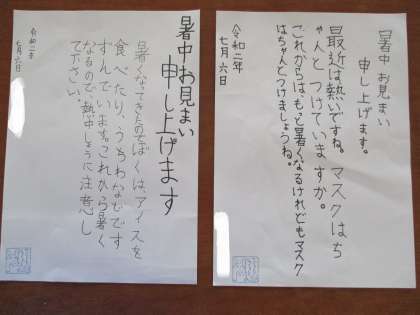 暑中お見まい
申し上げます。
最近は熱いですね。マスクはち
ゃんとつけていますか。
これからは、もっと暑くなるけれどもマスク
はちゃんとつけましょうね。
令和二年
七月六日
暑中お見まい
申し上げます
暑くなってきたのでぼくは、アイスを
食べたり、うちわなどで
すんでいます。これから暑く
なるので、熱中しょうに注意し
て下さい。
令和二年
七月六日